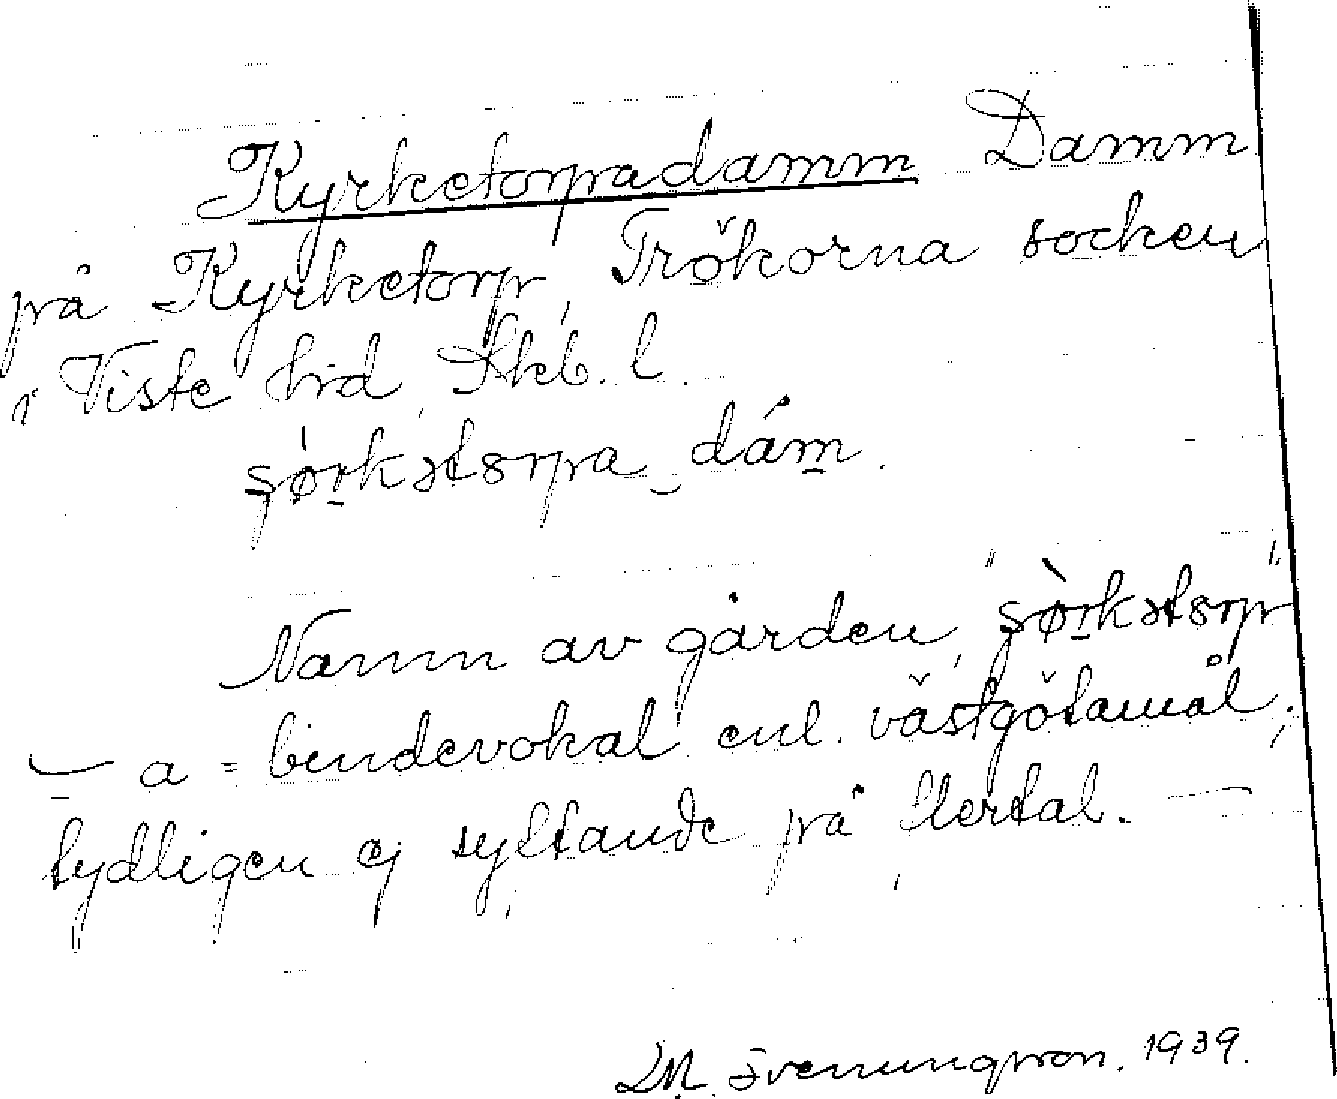 Kyrketorpadamm Damm
på Kyrketorp, Trökorna socken
i Viste hrd, Skb. l.
Namn av gården, "
a = bindevokal enl. västgötamål;
tydligen ej syftande på flertal. —
M. Svenungsson. 1939.